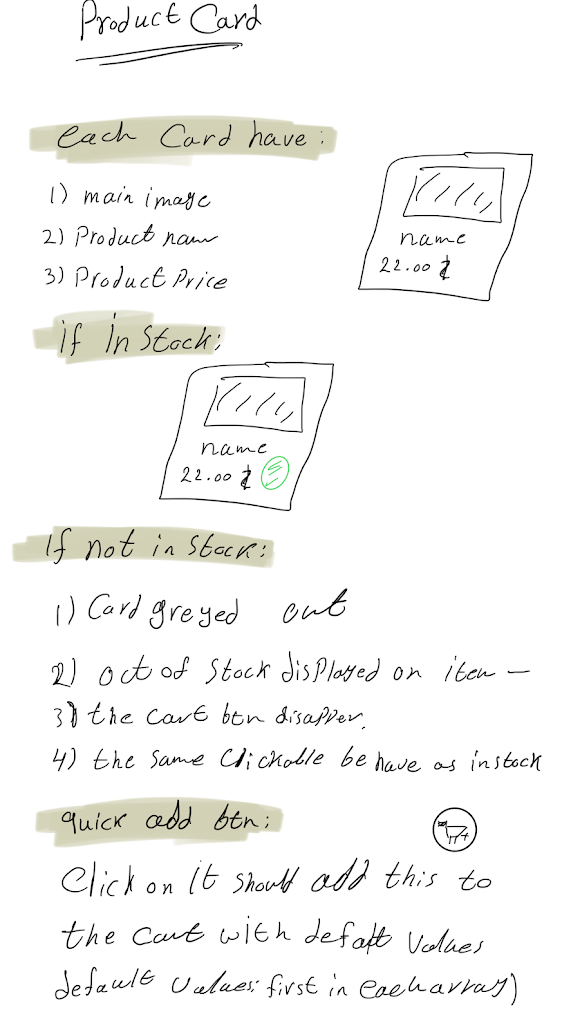 Product Card
each Card have:
1) main image
2) Product name
3) Product Price
name
22.00
if In Stock:
name
22.00
If not in stock:
1) Card greyed out
2) out of Stock displayed on item -
3) the cart btn disapper.
4) the same Clickable behave as instock
quick add btn:
Click on it should add this to
the cart with defalt Values
default values: first in each array)